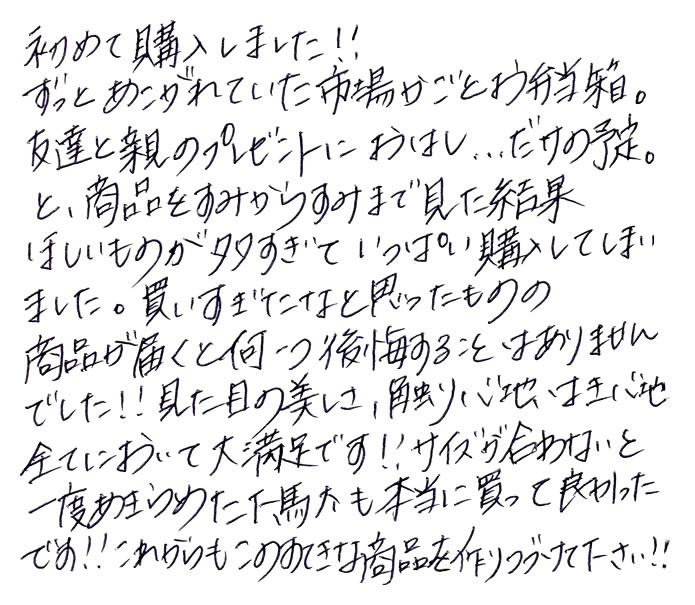 初めて購入しました!!
ずっとあこがれていた市場かごとお弁当箱。
友達と親のプレゼントにおはし...だけの予定。
と、商品をすみからすみまで見た結果
ほしいものが多すぎていっぱい購入してしまい
ました。買いすぎたなと思ったものの
商品が届くと何一つ後悔することはありません
でした!!見た目の美しさ、触り心地、はき心地
全てにおいて大満足です!!サイズが合わないと
一度あきらめた下駄も本当に買って良かった
です!!これからもこのすてきな商品を作りつづけて下さい!!